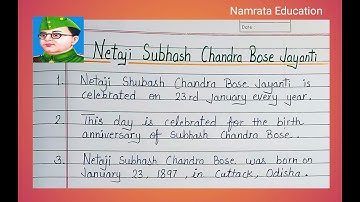 Namrata Education
Date
Netaji Subhash Chandra Bose Jayanti
1. Netaji Shubash Chandra Bose Jayanti is
celebrated on 23rd January every year.
2. This day is celebrated for the birth
anniversary of Subhash Chandra Bose.
3. Netaji Subhash Chandra Bose was born on
January 23, 1897, in Cuttack, Odisha.